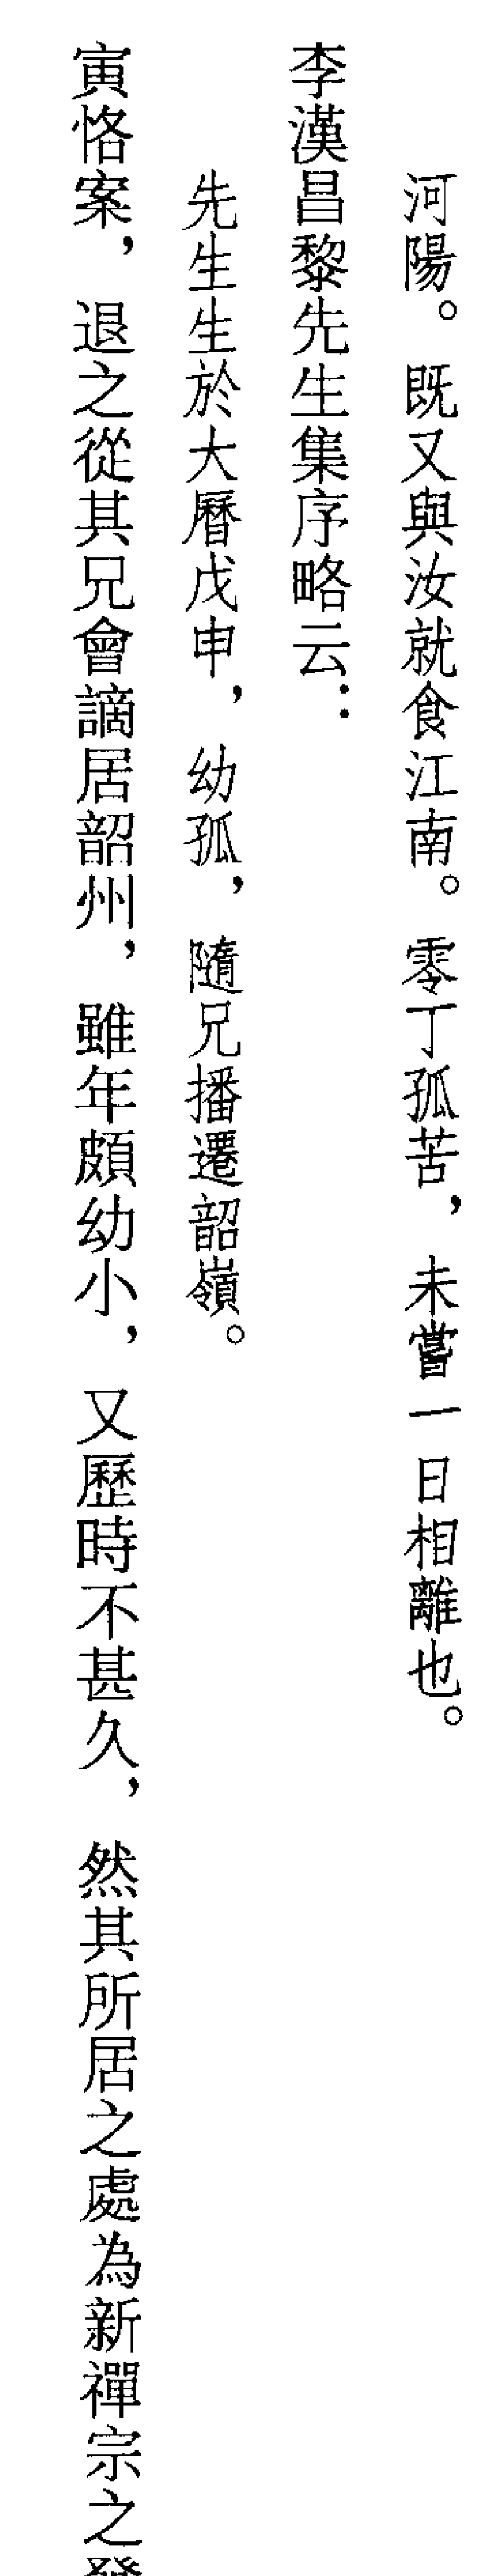 河陽。既又與汝就食江南。零丁孤苦，未嘗一日相離也。
李漢昌黎先生集序略云：
先生生於大曆戊申，幼孤，隨兄播遷韶嶺。
寅恪案，退之從其兄會謫居韶州，雖年頗幼小，又歷時不甚久，然其所居之處為新禪宗之